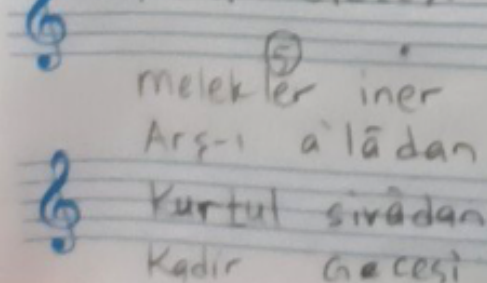 5
melekler iner
Arş-ı a'lādan
Kurtul sivādan
Kadir Gecesi